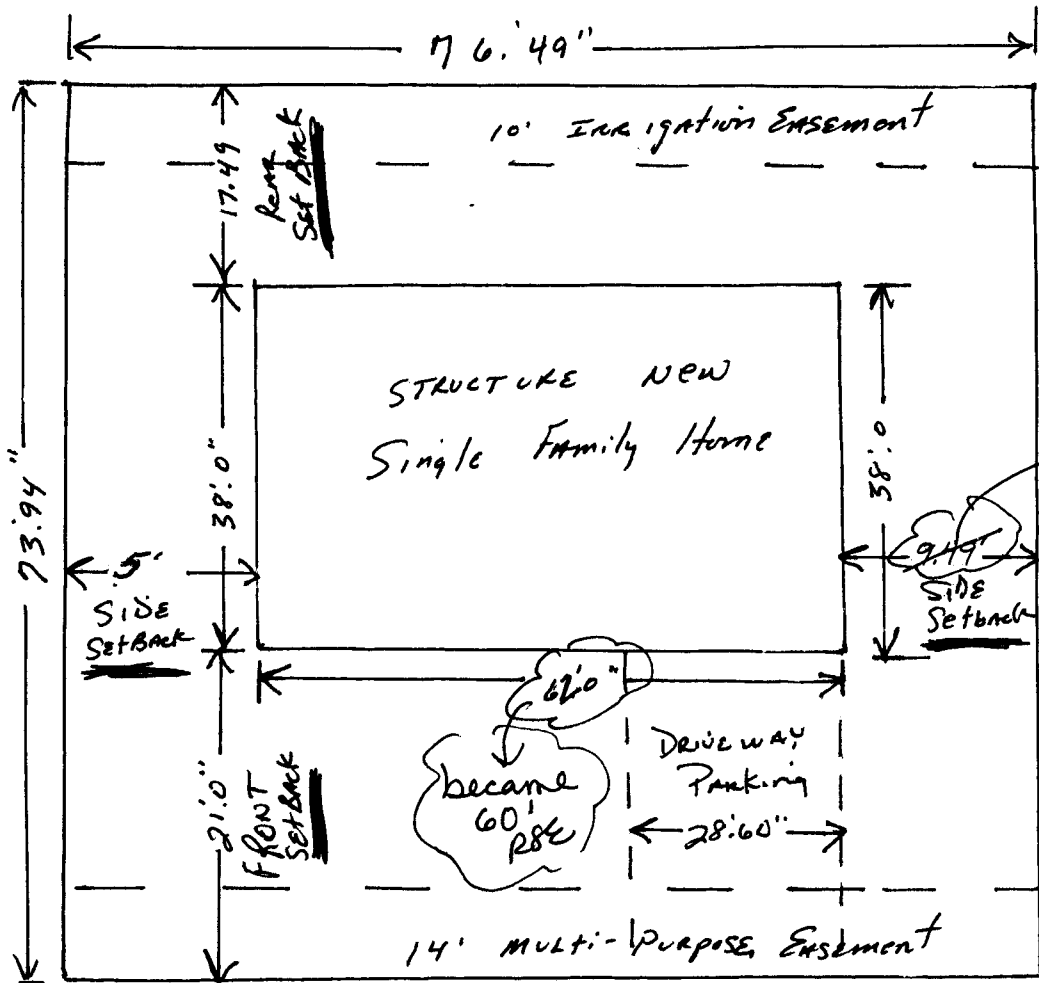 76.'49"
10' IRRIgAtion EASEMENT
17.49
REAR
Set BACK
STRUCTURE NEW
Single FAMily Home
73.'94"
38'.0"
38'.0
5'
SIDE
SETBACK
9.49'
SIDE
Setback
62'.0"
became
60'
DRIVEWAY
PARKing
28'.60"
21'.0"
FRONT
SETBACK
14' MULTi-PURPOSE EASEMENT